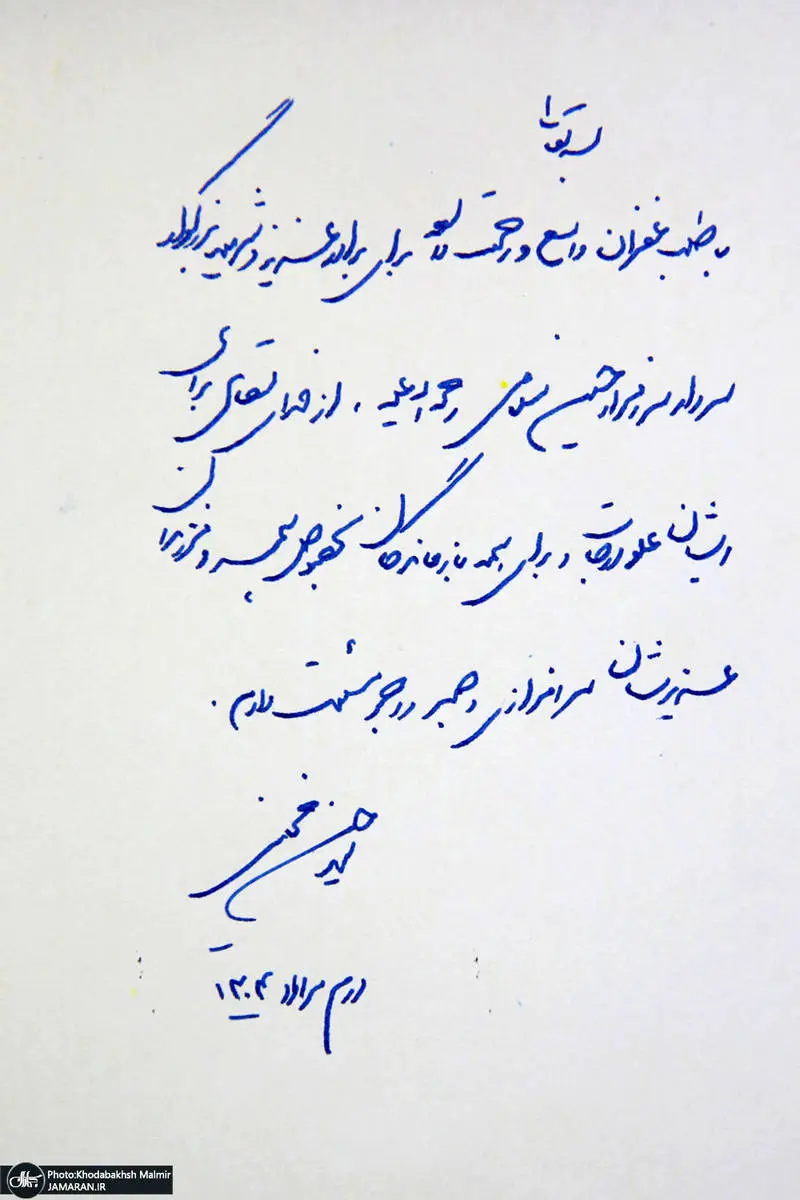 بسمه تعالی
با طلب غفران واسع و رحمت واسعه برای برادر عزیز و شهید بزرگوار
سردار سرافراز حسین سلامی رحمه الله علیه ، از خدای متعال برای
ایشان علو درجات و برای همه بازماندگان بخصوص همسر و فرزندان
عزیزشان سرافرازی و صبر و اجر مسئلت دارم .
سید حسن خمینی
دوم مرداد ۱۴۰۴
Photo:Khodabakhsh Malmir
JAMARAN.IR